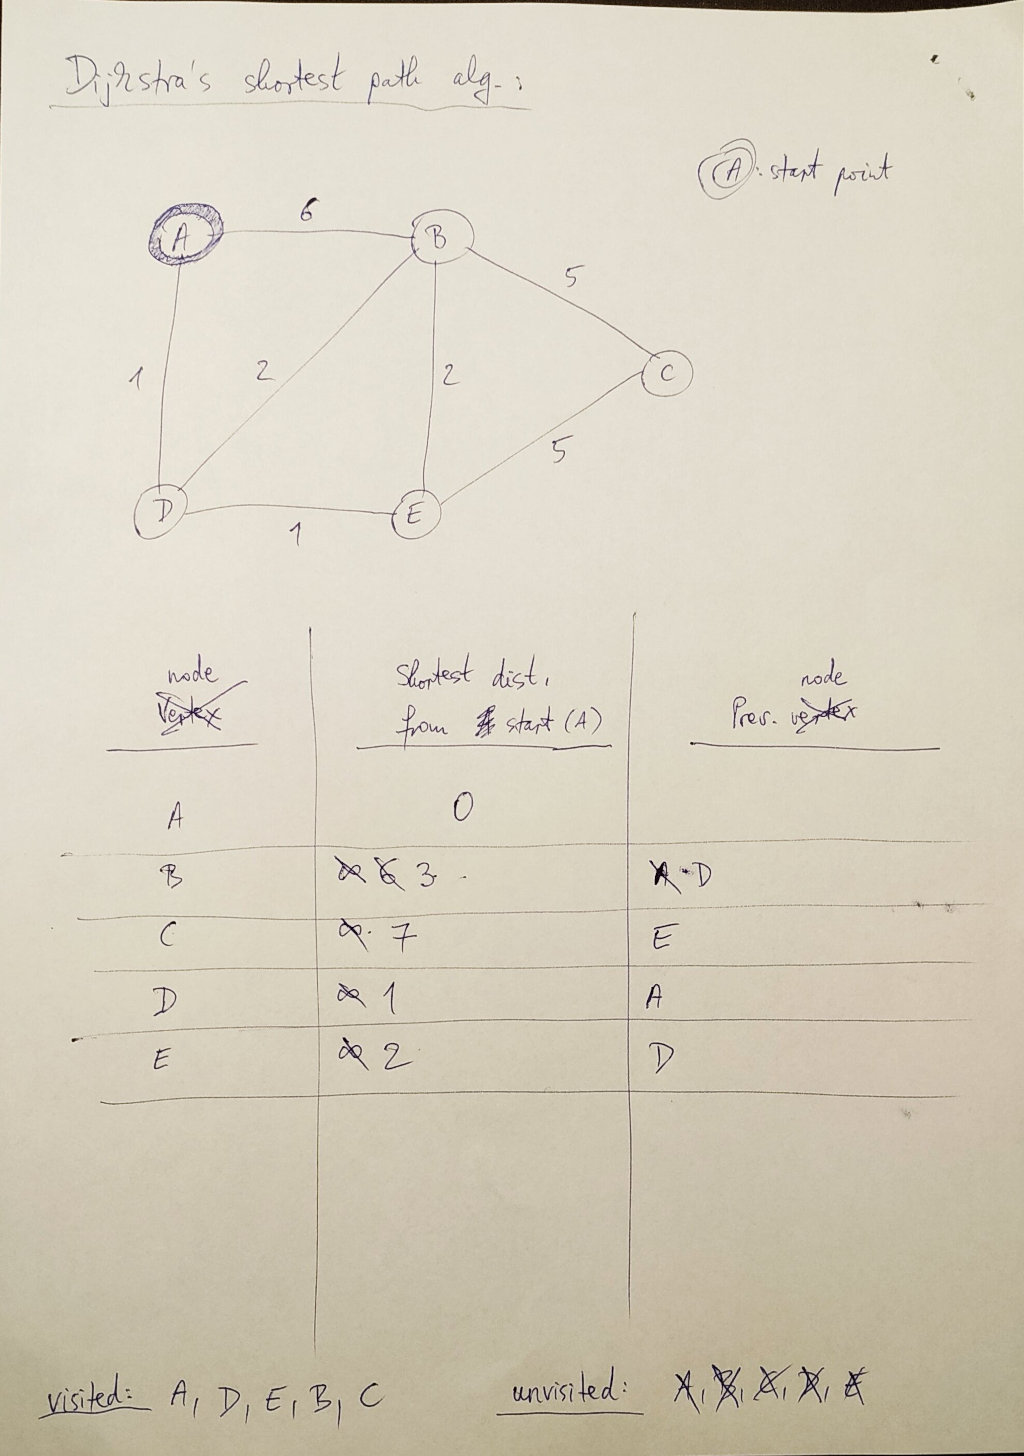 Dijkstra's shortest path alg.:
A: start point
A 6 B
5
1 2 2 C
5
D 1 E
node Shortest dist. node
Vertex from start (A) Prev. vertex
A 0
B ∞ 6 3 A D
C ∞ 7 E
D ∞ 1 A
E ∞ 2 D
visited: A, D, E, B, C unvisited: A, B, C, D, E